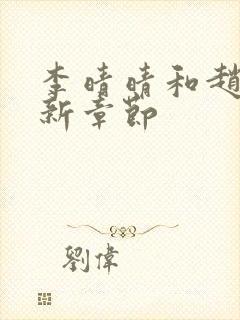 李晴晴和趙
新章節
劉偉